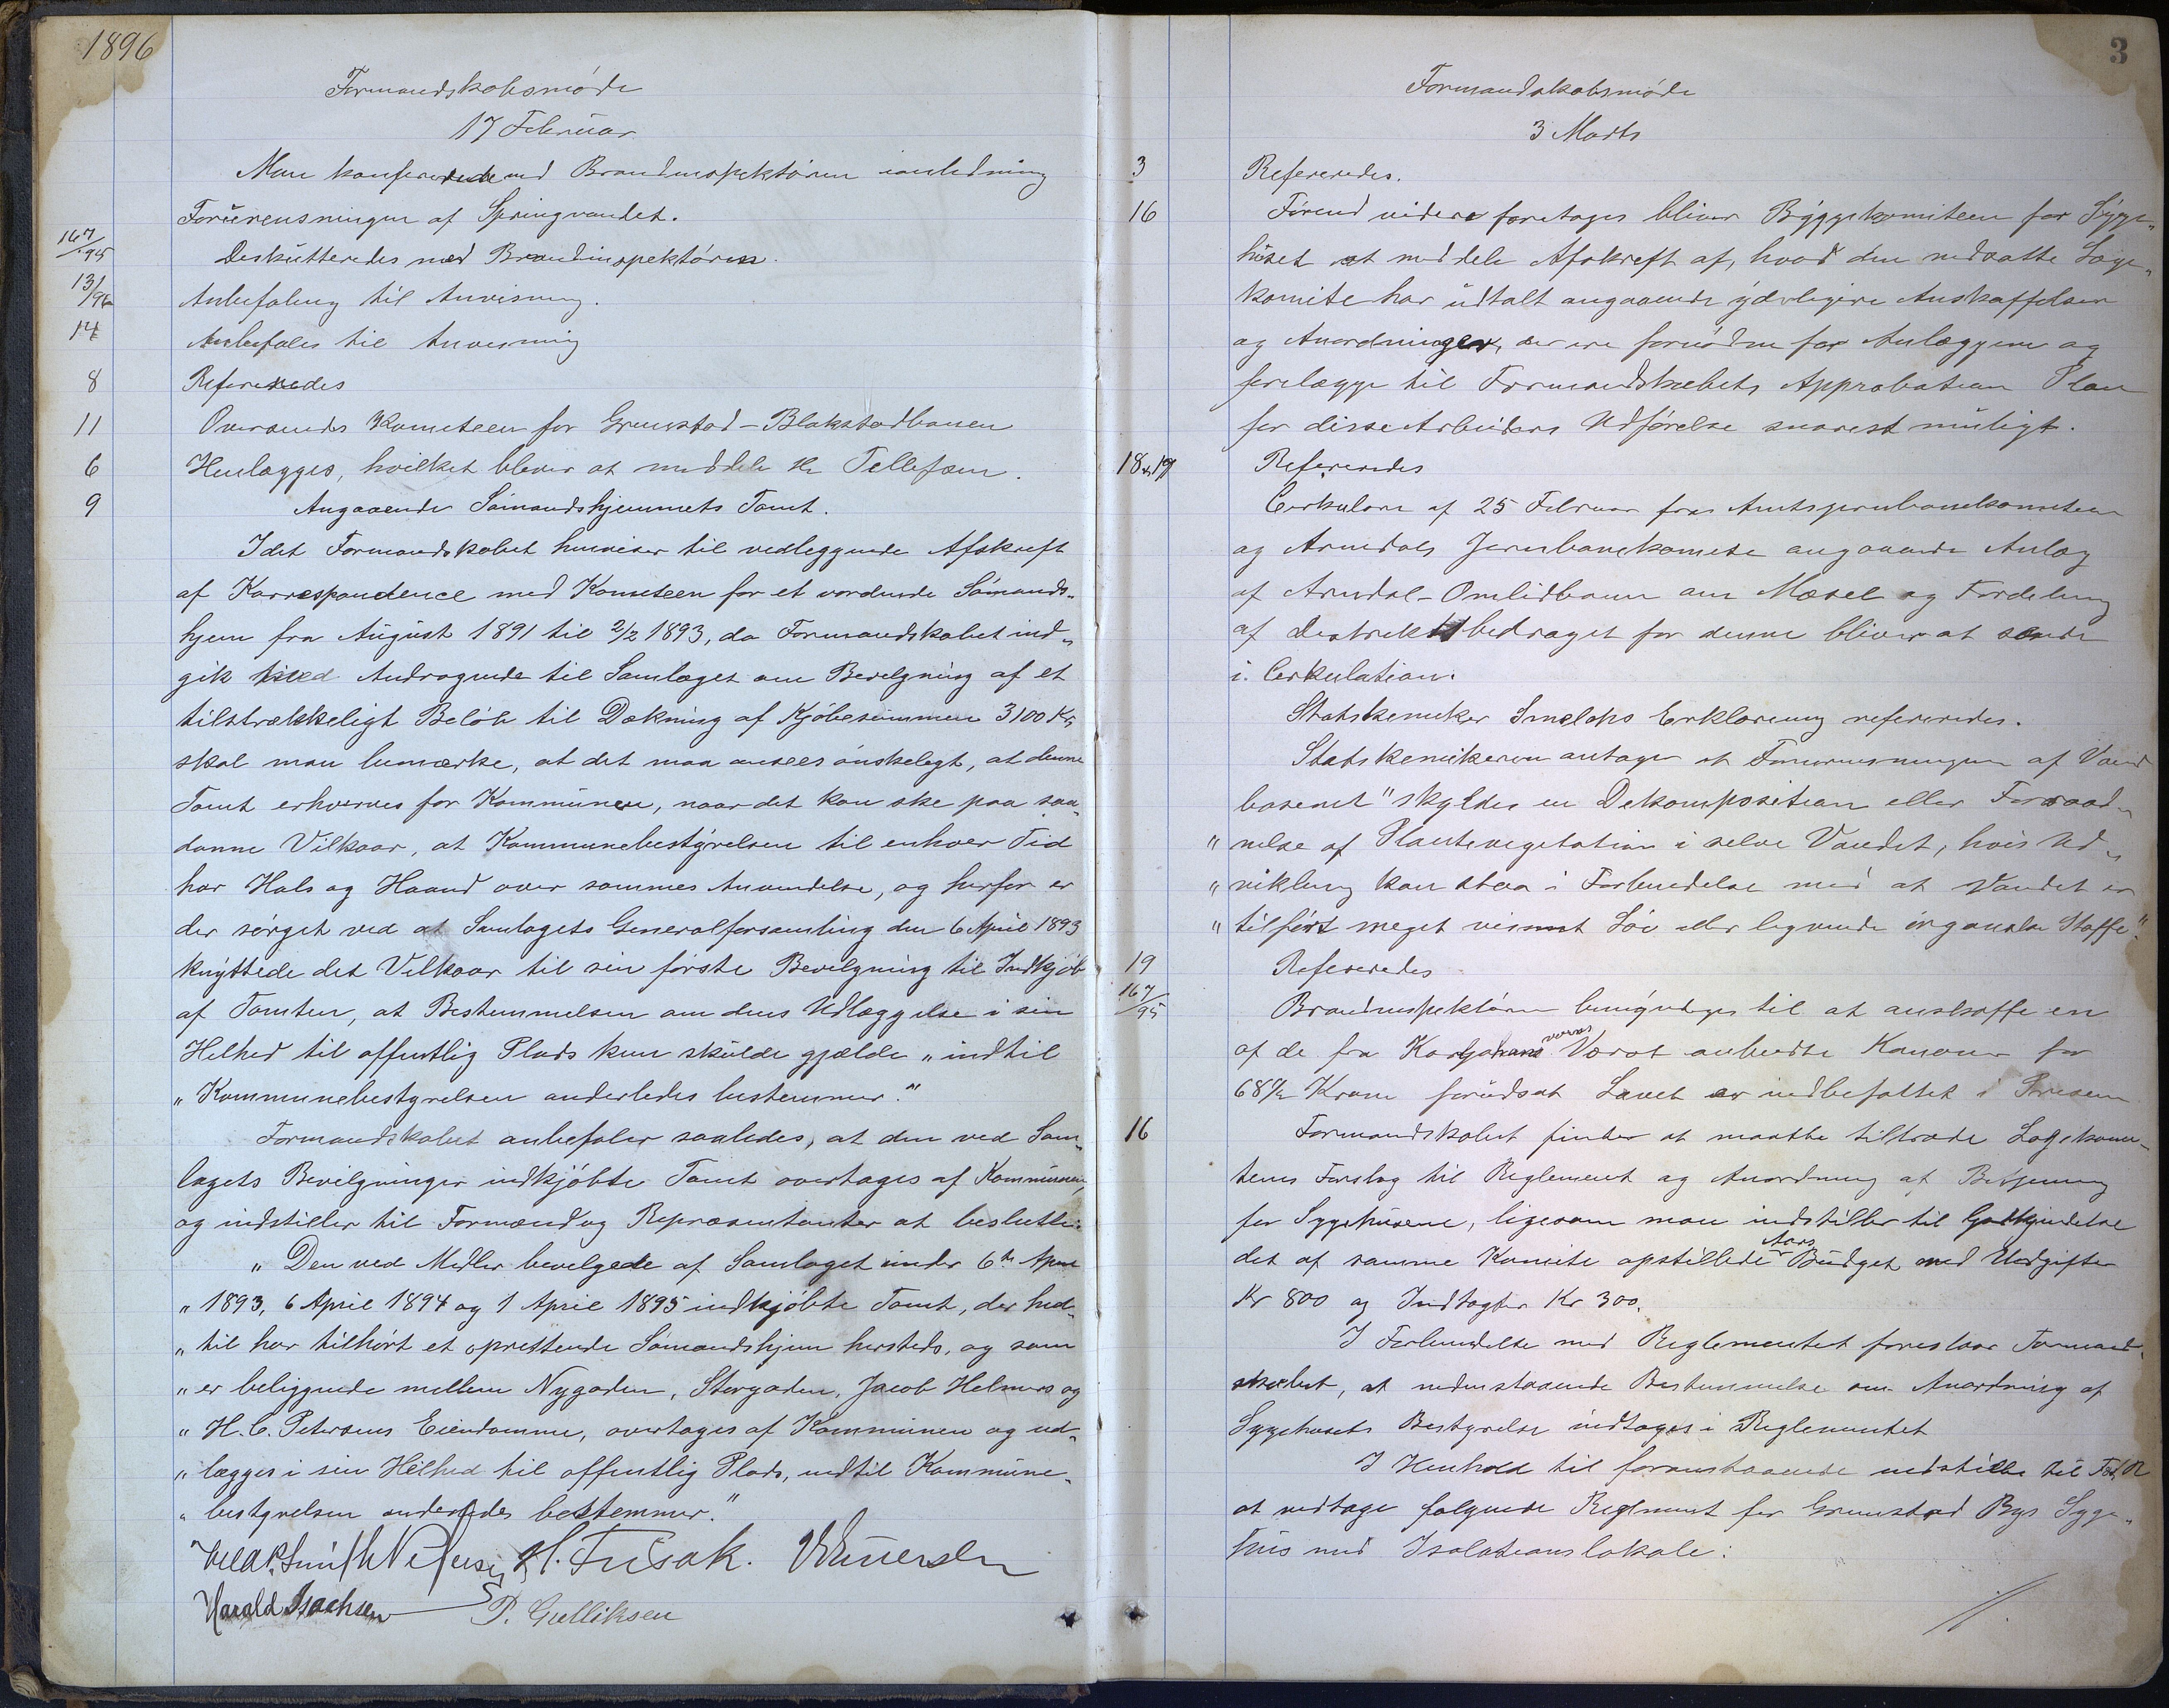 1896
Formandskabsmøde
17 Februar
Man konfererede med Brandinspektøren ianledning
Forurensningen af Springvandet.
167/95 Deskutteredes med Brandinspektøren.
13/96 Anbefaling til Anvisning.
14 Anbefales til Anvisning
8 Refereredes
11 Oversendes Kometeen for Grimstad-Blakstadbanen
6 Henlægges, hvilket bliver at meddele Hr Tellefsen.
9 Angaaende Sømandshjemmets Tomt.
Idet Formandskabet henviser til vedleggende Afskreft
af Korrespondence med Kometeen for et vordende Sømands-
hjem fra August 1891 til 2/2 1893, da Formandskabet ind-
gik med Andragende til Samlaget om Bevilgning af et
tilstrækkeligt Beløb til Dækning af Kjøbesummen 3100 Kr,
skal man bemærke, at det maa ansees ønskeligt, at denne
Tomt erhverves for Kommunen, naar det kan ske paa saa-
danne Vilkaar, at Kommunebestyrelsen til enhver Tid
har Hals og Haand over sammes Anvendelse, og herfor er
der sørget ved at Samlagets Generalforsamling den 6 April 1893
knyttede det Vilkaar til sin første Bevilgning til Indkjøb
af Tomten, at Bestemmelsen om dens Udlæggelse i sin
Helhed til offentlig Plads kun skulde gjælde „indtil
„Kommunebestyrelsen anderledes bestemmer."
Formandskabet anbefaler saaledes, at den ved Sam-
lagets Bevilgninger indkjøbte Tomt overtages af Kommunen,
og indstiller til Formænd og Repræsentanter at beslutte:
„Den ved Midler bevilgede af Samlaget under 6te April
„1893, 6 April 1894 og 1 April 1895 indkjøbte Tomt, der hid-
„til har tilhørt et oprettende Sømandshjem hersteds, og som
„er beliggende mellem Nygaden, Storgaden, Jacob Helmers og
„H. C. Petersens Eiendomme, overtages af Kommunen og ud-
„lægges i sin Helhed til offentlig Plads, indtil Kommune-
„bestyrelsen anderledes bestemmer."
Harald Isachsen P. Gulliksen
3
Formandskabsmøde
3 Marts
3 Refereredes.
16 Førend videre foretages bliver Byggekomiteen for Syge-
huset at meddele Afskreft af, hvad den nedsatte Læge-
komite har udtalt angaaende yderligere Anskaffelser
og Anordninger, der ere fornødne for Anlæggene og
forelægge til Formandskabets Approbation Plan
for disse Arbeiders Udførelse snarest muligt.
18 & 19 Refereredes
Cirkulære af 25 Februar fra Amtsjernbanekometeen
og Arendals Jernbanekomite angaaende Anlæg
af Arendal-Omlidbanen om Mæsel og Fordeling
af Destriktsbedraget for denne bliver at sende
i Cirkulation.
Statskemiker Schmelcks Erklæring refereredes.
Statskemikeren antager at Forurensningen af Vand
basenet "skyldes en Dekomposition eller Forraad-
„nelse af Plantevegetation i selve Vandet, hvis Ud-
„vikling kan staa i Forbindelse med at Vandet er
„tilført meget vissent Løv eller lignende organske Stoffe".
19 Refereredes
167/95 Brandinspektøren bemyndiges til at anskaffe en
af de fra Karljohans værns Værft anbudte Kanoner for
68 1/2 Krone forudsat Lavet er indbefattet i Prisen
16 Formandskabet finder at maatte tiltræde Lægekomi-
teens Forslag til Reglement og Anordning af Betjening
for Sygehusene, ligesom man indstiller til Godkjendelse
det af samme Komite opstillede Aars Budget med Udgifter
Kr 800 og Indtægter Kr 300.
I Forbindelse med Reglementet foreslaar Formand-
skabet, at nedenstaaende Bestemmelse om Anordning af
Sygehusets Bestyrelse indtages i Reglementet
I Henhold til foranstaaende indstilles til F & R
at vedtage følgende Reglement for Grimstad Bys Syge-
hus med Isolationslokale: